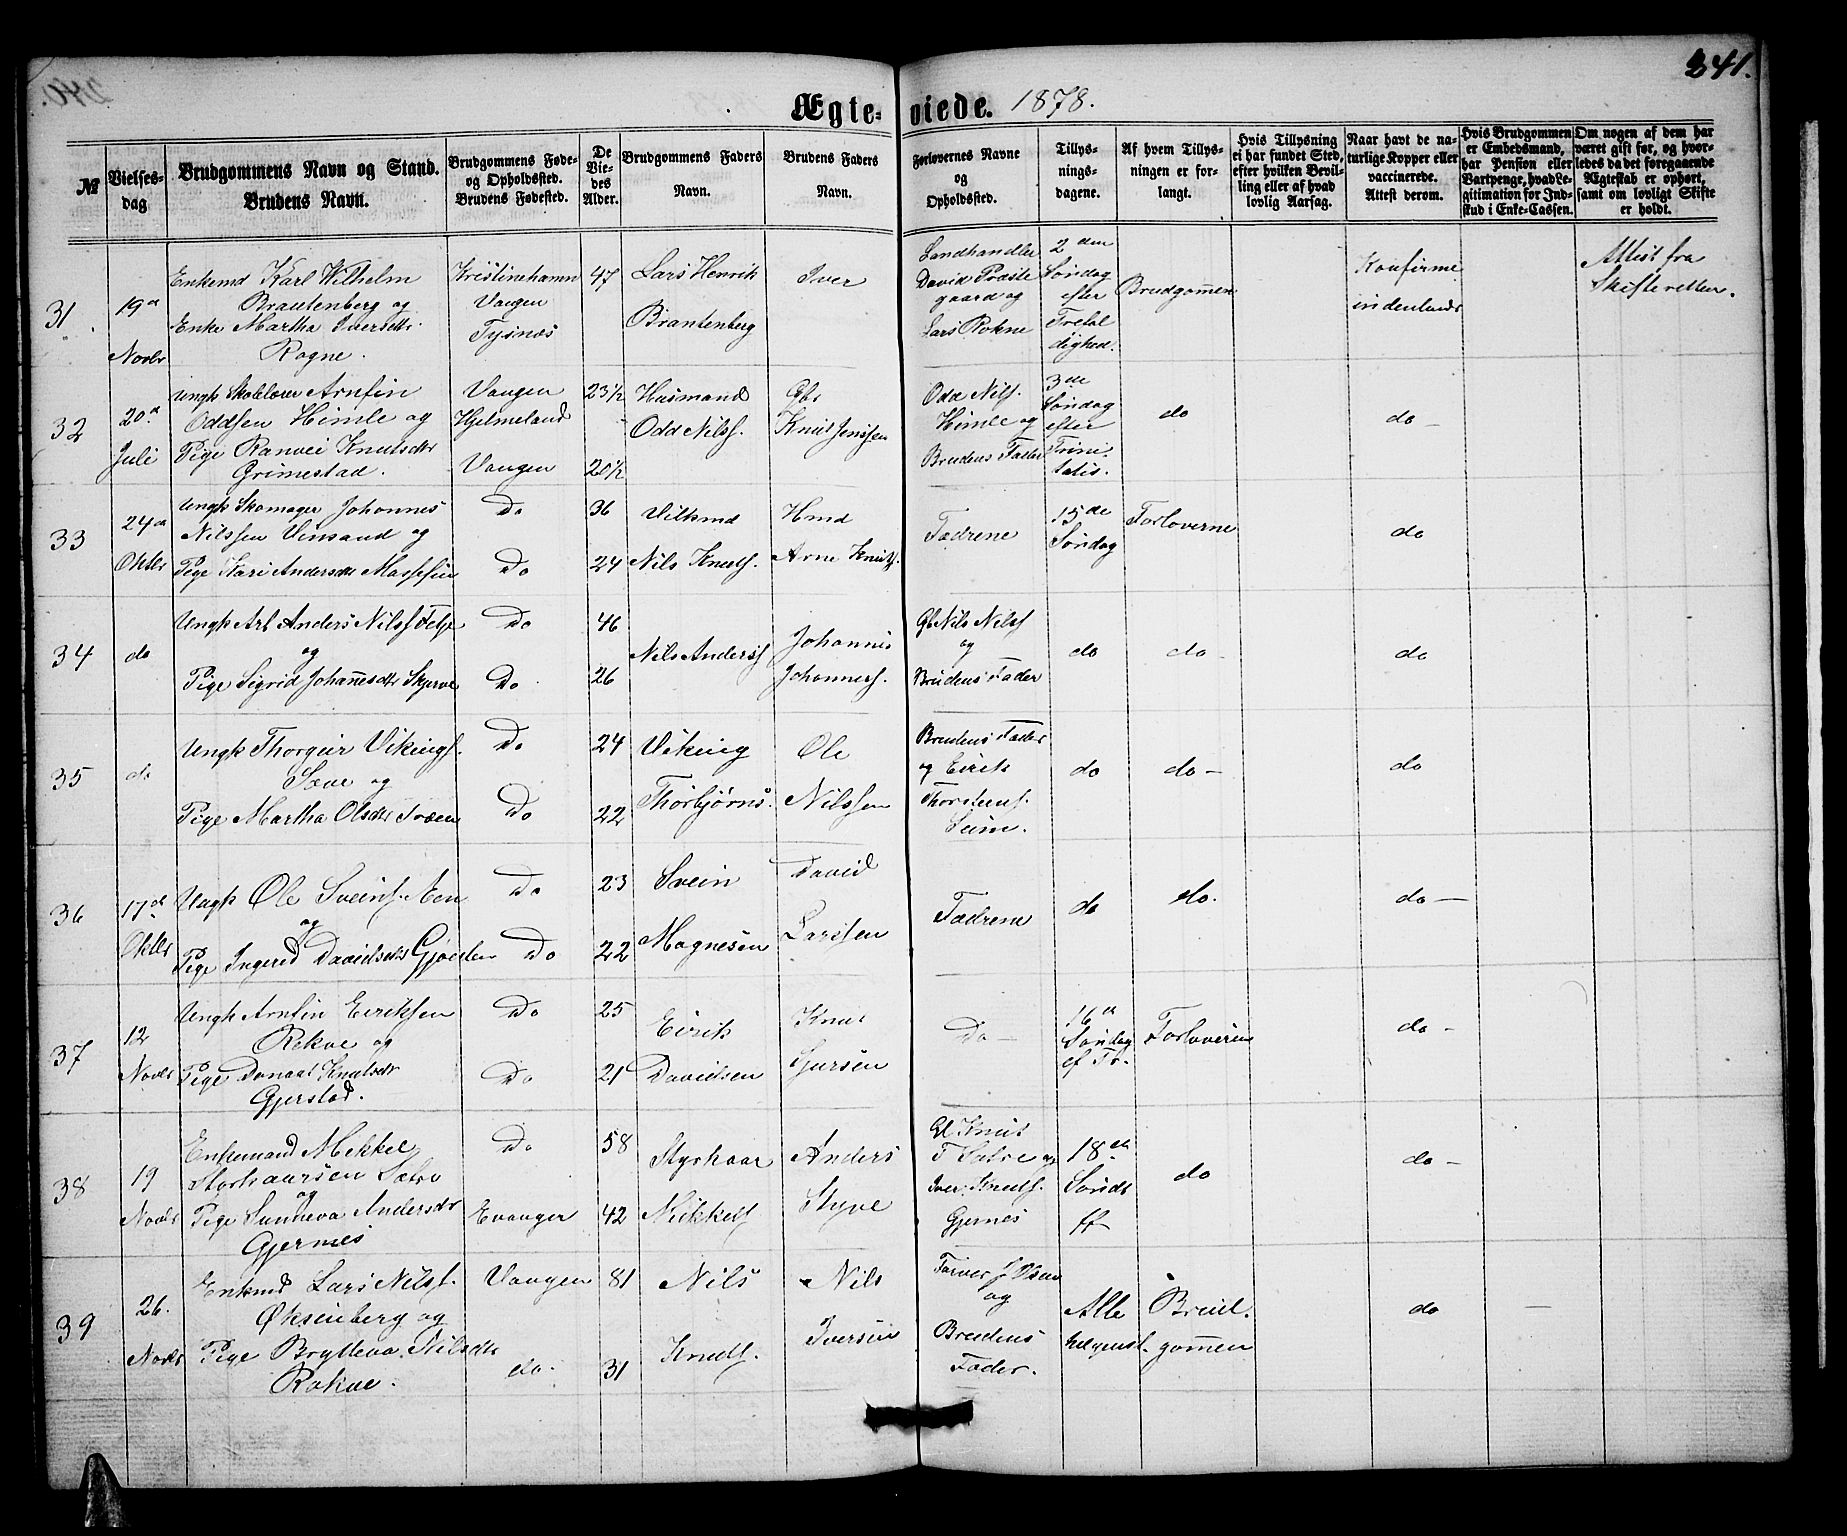 241.
Ægteviede. 1878.
№
Vielses-
dag
Brudgommens Navn og Stand.
Brudens Navn.
Brudgommens Føde-
og Opholdssted.
Brudens Fødested.
De
Vie-
des
Alder.
Brudgommens Faders
Navn.
Brudens Faders
Navn.
Forlovernes Navne
og
Opholdssted.
Tillys-
nings-
dagene.
Af hvem Tillys-
ningen er for-
langt.
Hvis Tillysning
ei har fundet Sted,
efter hvilken Bevil-
ling eller af hvad
lovlig Aarsag.
Naar havt de na-
turlige Kopper eller
vaccinerede.
Attest derom.
Hvis Brudgommen
er Embedsmand,
har Pension eller
Vartpenge, hvad Le-
gitimation for Ind-
skud i Enke-Cassen.
Om nogen af dem har
været gift før, og hvor-
ledes da det foregaaende
Ægteskab er ophørt,
samt om lovligt Skifte
er holdt.
31.
19d
Novbr
Enkemd Karl Wilhelm
Brautenberg og
Enke Martha Iversdtr.
Rogne.
Kristinehamn
Vangen
Tysnæs
47
Lars Henrik
Brantenberg
Iver
Landhandler
David Præste
gaard og
Lars Rokne
2den
Søndag
efter
Trefol
dighed.
Brudgom̅en
Konfirme
indenlands
Attest fra
Skifteretten.
32
20d
Juli
Ungk Skolelærer Arnfin
Oddsen Himle og
Pige Ranvei Knutsdtr
Grimestad.
Vangen
Hjelmeland
Vangen
23½
20½
Husmand
Odd Nilss.
Gbr
Knut Jenssen
Odd Nils.
Himle og
Brudens Fader
3de
Søndag
efter
Trini-
tatis.
do
do –
33
24d
Oktbr
Ungk Skomager Johannes
Nilssen Vinsand og
Pige Kari Andersdtr
Do
Do
36
24
Nils Knuts.
Hmd
Arne Knuts.
Fædrene
15de
Søndag
Forloverne
do
34
do
Ungk Arb Anders Nilss
og
Pige Sigrid Johan̅esdtr Skjerve
Do
Do
46
26
Nils Anderss
Johannes
Johanness.
Gb Nils Nilss
og
Brudens Fader
do
do –
do
35
do
Ungk Thorgeir Vikings.
Sæve og
Pige Martha Olsdtr
Do
Do
24
22
Viking
Thorbjørns.
Ole
Nilssen
Brudens Fader
og Eirik
Thorsteins.
Seim.
do
do –
do
36
17d
Oktbr
Ungk Ole Sveins.
og
Pige Ingered Davidsdtr
Do
Do
23
22
Svein
Magnesen
David
Larssen
Fædrene
do
do.
do –
37
12
Novbr
Ungk Arnfin Eiriksen
Rekve og
Pige Knutsdtr
Gjerstad.
Do
Do
25
21
Eirik
Davidsen
Knut
Gjursen
Do –
16d
Søndag
ef Tr.
Forloveren
do –
38
19
Novbr
Enkemand Mekkel
Styrkaarsen
og
Pige Sunneva Andersdtr
Gjernes
Do
Evanger
58
42
Styrkaar
Mikkels
Anders
Styve
Knut
og
Iver Knuts.
Gjernes
18de
Sønd
do
do –
39
26.
Novbr
Enkmd Lars Nilss.
Øksenberg og
Pige Bryteva Nilsdtr
Rokne.
Vangen
do.
81
31
Nils
Knuts.
Nils
Iversen
og
Brudens
Fader.
Alle
helgenst.
Brud-
gom̅en
do
–